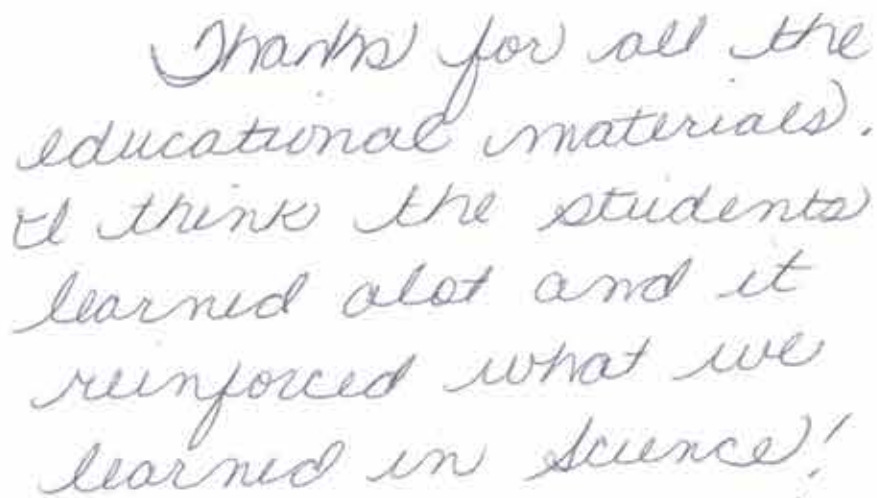 Thanks for all the
educational materials.
I think the students
learned alot and it
reinforced what we
learned in Science!